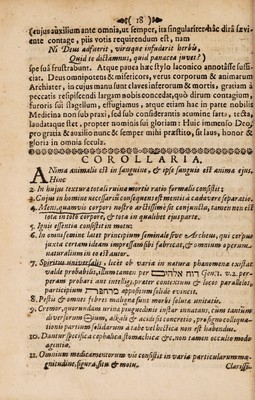 ( 18 )
(cujus auxilium ante omnia, ut semper, ita singulariter hâc dirâ sæviente contage, piis votis requirendum est, nam
Ni Deus adfuerit, viresque infuderit herbis,
Quid te dictamnus, quid panacea juvet?)
spe suâ frustrabunt. Atque pauca hæc stylo laconico annotâsse sufficiat. Deus omnipotens & misericors, verus corporum & animarum
Archiater, in cujus manu sunt claves inferorum & mortis, gratiam à
peccatis resipiscendi largam nobis concedat, quò dirum contagium,
furoris sui flagellum, effugiamus, atque etiam hac in parte nobilis
Medicina non sub praxi, sed sub considerantis acumine farta, tecta,
laudataque stet, propter nominis sui gloriam! Huic immenso Deo,
pro gratia & auxilio nunc & semper mihi præstito, sit laus, honor &
gloria in omnia secula.
COROLLARIA.
ANima animalis est in sanguine, & ipse sanguis est anima ejus.
Hinc
2. In hujus textura totali ruina mortis ratio formalis consistit;
3. Cujus in homine necessariò consequens est mentis à cadavere separatio.
4. Mens, quamvis corpori nostro arctissimè sit conjuncta, tamen non est
tota in toto corpore, & tota in qualibet ejus parte.
5. Ignis essentia consistit in motu;
6. In omni semine latet principium seminale sive Archeus, qui corpus
juxta certam ideam impressam sibi fabricat, & omnium operum
naturalium in eo est autor.
7. Spiritus universalis, licet ob varia in natura phænomena existat
valdè probabilis, illum tamen per רוח אלהים Gen. 1. v. 2. perperam probari ant intelligi, præter contextum & loco parallelos,
participium מרחפת appositum solidè evincit.
8. Pestis & omnes febres malignæ sunt morbi soluta unitatis.
9. Cremor, quorundam urina pinguedinis instar innatans, cum tantùm
diversorum ⊖ium, alkali & acidi sit concretio, pro signo colliquationis partium solidarum à tabe vel hectica non est habendus.
10. Dantur specifica cephalica stomachica &c, non tamen occulto modo
agentia.
11. Omnium medicamentorum vis consistit in varia particularum magnitudine, figura, situ & motu.
Clarissi-